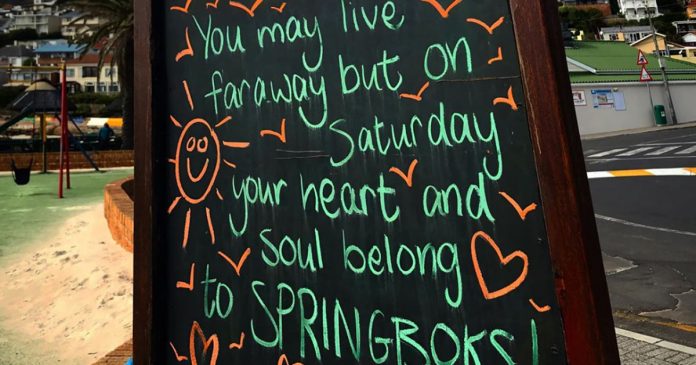 You may live
faraway but on
Saturday
your heart and
soul belong
to SPRINGBOKS!